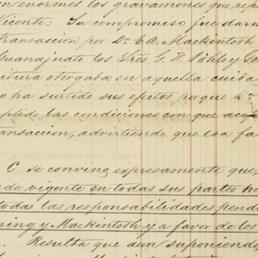 en enormes los gravamenes que rep
Vicente: La compromiso fue darn
transacion por Dn. E.A. Mackintosh
Guanajuato los Sres G. F. Pöhls y So
critura otorgada en aquella cuida
no ha surtido sus efetos porque
plido las condiciones con que ace
ansacion, advirtiendo que esa fa
C. se convino expresamente que,
de vigente en todas sus partes ha
todas las responsabilidades pend
ning y Mackintosh y a favor de los
Resulta que aun suponiendo